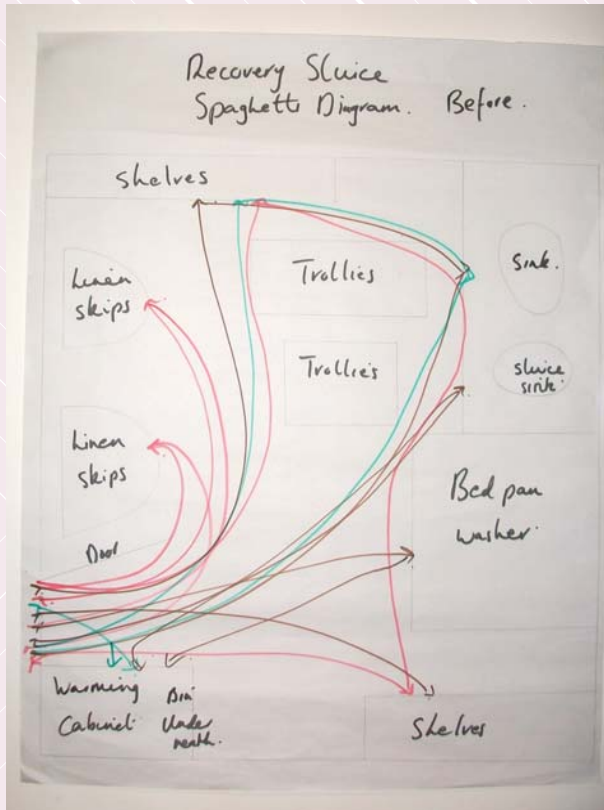 Recovery Sluice
Spaghetti Diagram. Before.
Shelves
Linen
skips
Trollies
Sink.
Trollies
sluice
sink.
Linen
skips
Bed pan
washer.
Door
Warming
Cabinet
Bin
Under
neath.
Shelves